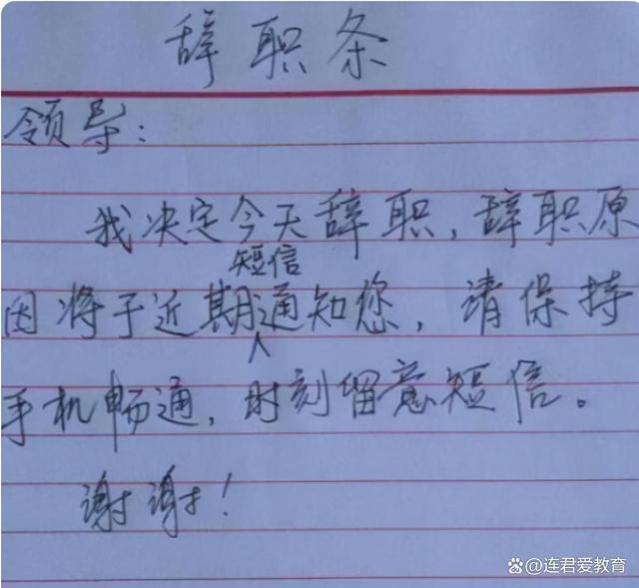 辞职条
领导：
我决定今天辞职，辞职原
因将于近期短信通知您，请保持
手机畅通，时刻留意短信。
谢谢！
连君爱教育